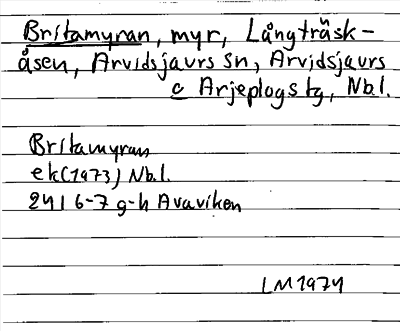 Britamyran, myr, Långträsk-
åsen, Arvidsjaurs sn, Arvidsjaurs
o Arjeplogs tg, Nb.l.
Britamyran
ek(1973) Nb.l.
24I 6-7 g-h Avaviken
LM1974